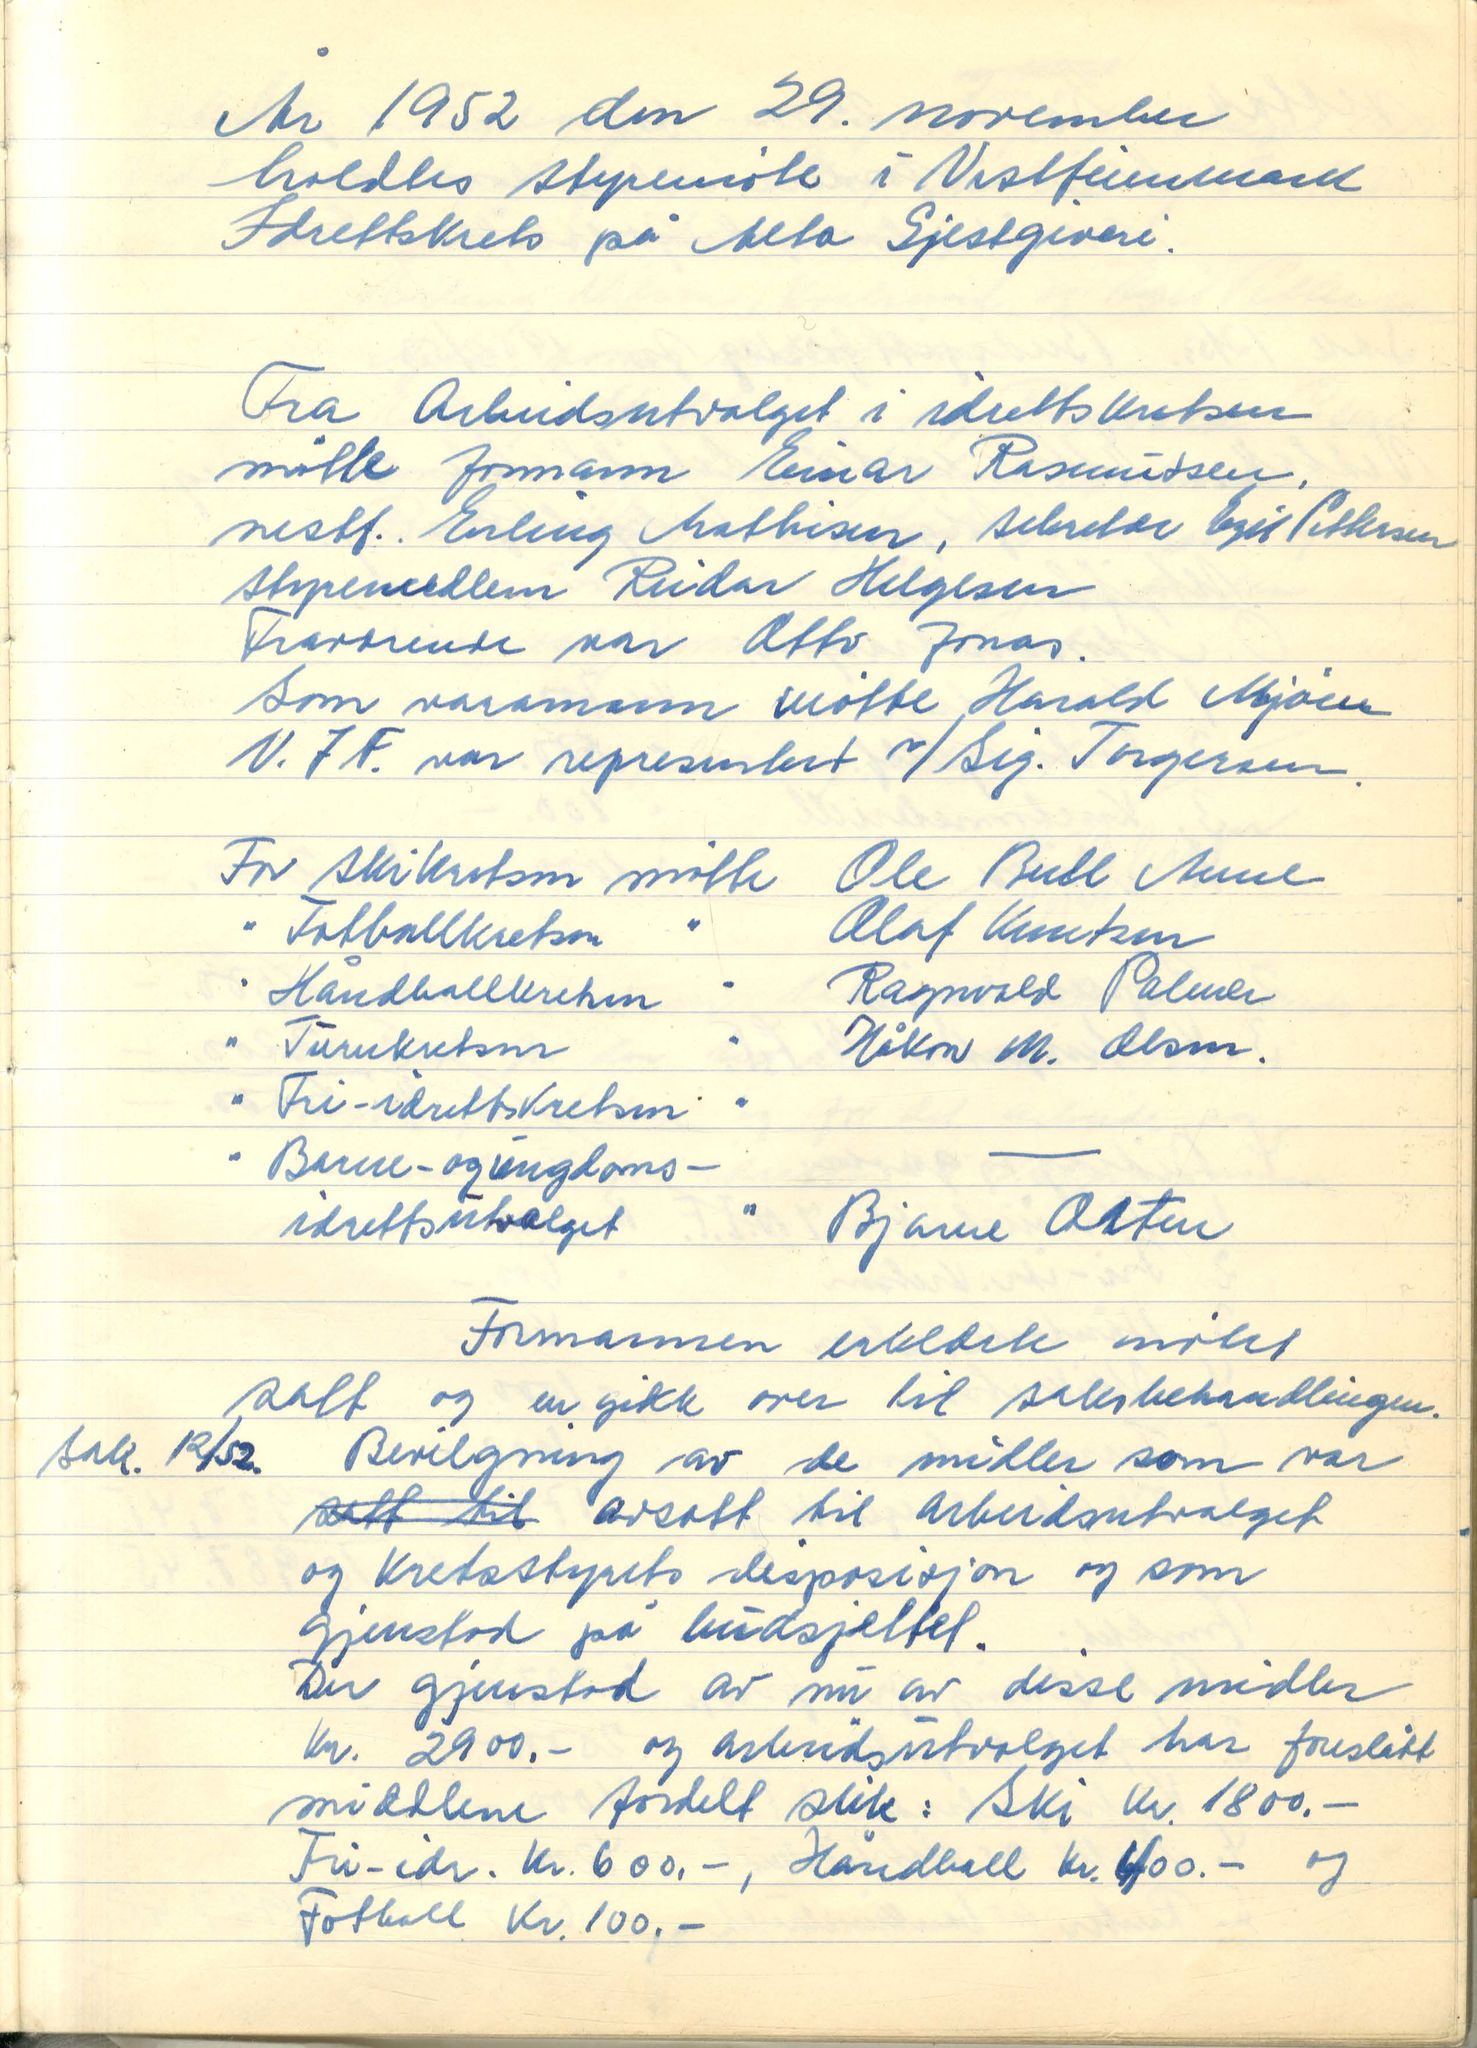 År 1952 den 29. november
holdtes styremöte i Vestfinnmark
Idrettskrets på Alta Gjestgiveri.
Fra Arbeidsutvalget i idrettskretsen
mötte formann Einar Rasmussen,
nestf. Erling Mathisen, sekretær Egil Pettersen
styremedlem Reidar Helgesen
Fraværende var Otto Jonas.
Som varamann mötte Harald Mjöen
N.I.F. var representert v/ Sig. Torgersen.
For Skikretsen mötte Ole Bull Aune
" Fotballkretsen " Olaf Knutsen
" Håndballkretsen " Ragnvald Palmer
" Turnkretsen " Håkon M. Olsen.
" Fri-idrettskretsen "
" Barne- og ungdoms- —
idrettsutvalget " Bjarne Osten
Formannen erklærte mötet
satt og en gikk over til saksbehandlingen.
Sak. 12/52. Bevilgning av de midler som var
satt til avsatt til arbeidsutvalget
og kretsstyrets disposisjon og som
gjenstod på budsjettet.
Der gjenstod av nu av disse midler
Kr. 2900.- og arbeidsutvalget har foreslått
midlene fordelt slik: Ski Kr. 1800.-
Fri-idr. Kr. 600.-, Håndball Kr. 400.- og
Fotball Kr. 100.-